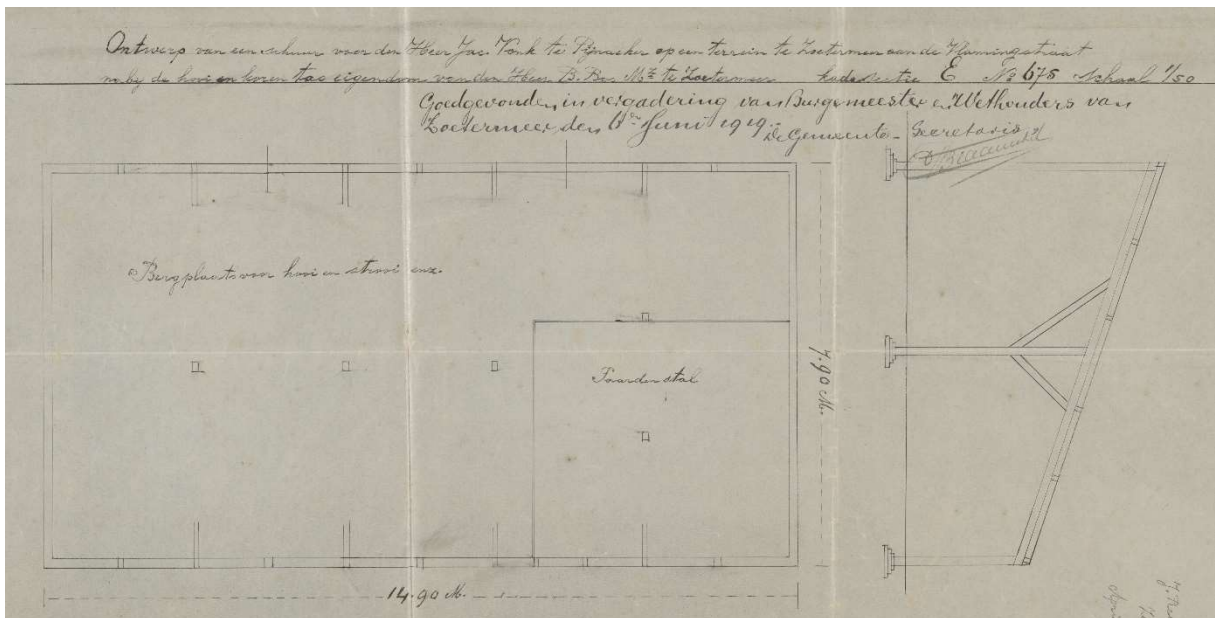 Ontwerp van een schuur voor den Heer Jac. Vonk te Pijnacker op een terrein te Zoetermeer aan de Vlamingstraat
nabij de hooi en koren tas eigendom van den Heer B. Bos Mz te Zoetermeer kad. sectie E No 678 Schaal 1/50
Goedgevonden in vergadering van Burgemeester en Wethouders van
Zoetermeer den 6den Juni 1919.
De Gemeente-Secretaris
Bergplaats voor hooi en stroo enz.
Paardenstal
7.90 M.
14.90 M.